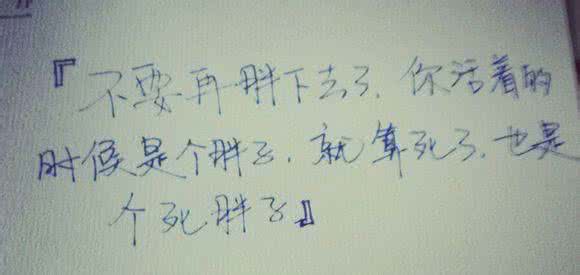 『不要再胖下去了、你活着的
时候是个胖子、就算死了、也是
个死胖子』